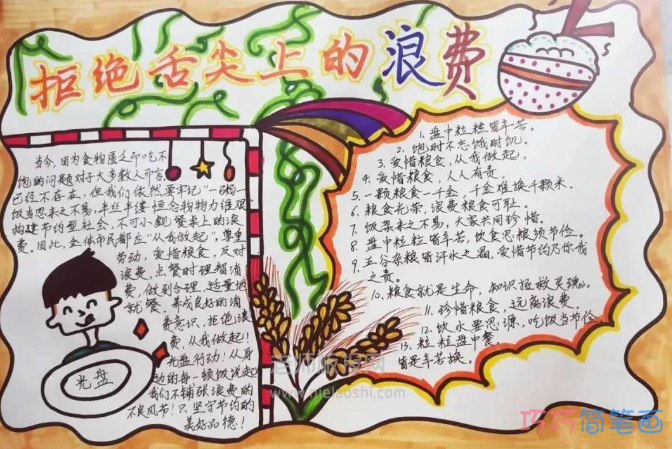 拒绝舌尖上的浪费
当今,因为食物匮乏而吃不
饱的问题对于大多数人而言
已经不存在,但我们依然要牢记"一粥一
饭当思来之不易,半丝半缕恒念物力维艰
构建节约型社会,不可小觑餐桌上的浪
费。因此,全体市民都应"从我做起",尊重
劳动,爱惜粮食,反对
浪费。点餐时理智消
费,做到合理、适量地
就餐。养成良好的消
费意识,拒绝浪
费,从我做起!
光盘行动!从身
边的每一顿饭说起
我们不铺张浪费的
不良风节!只坚守节约的
美好品德!
光盘
1. 盘中粒粒皆辛苦。
2. 饱时不忘饿时饥。
3. 爱惜粮食,从我做起。
4. 爱惜粮食,人人有责。
5. 一颗粮食一千金,千金难换千颗米。
6. 粮食光荣,浪费粮食可耻。
7. 饭菜来之不易,大家共同珍惜。
8. 盘中粒粒皆辛苦,饮食思粮须节俭。
9. 五谷杂粮皆汗水之晶,爱惜节约乃你我
之责。
10. 粮食就是生命,知识拯救灵魂。
11. 珍惜粮食,远离浪费。
12. 饮水要思源,吃饭当节俭
13. 粒粒盘中餐
皆是辛苦换。
老师板报网
www.dielaoshi.com
巧巧简笔画